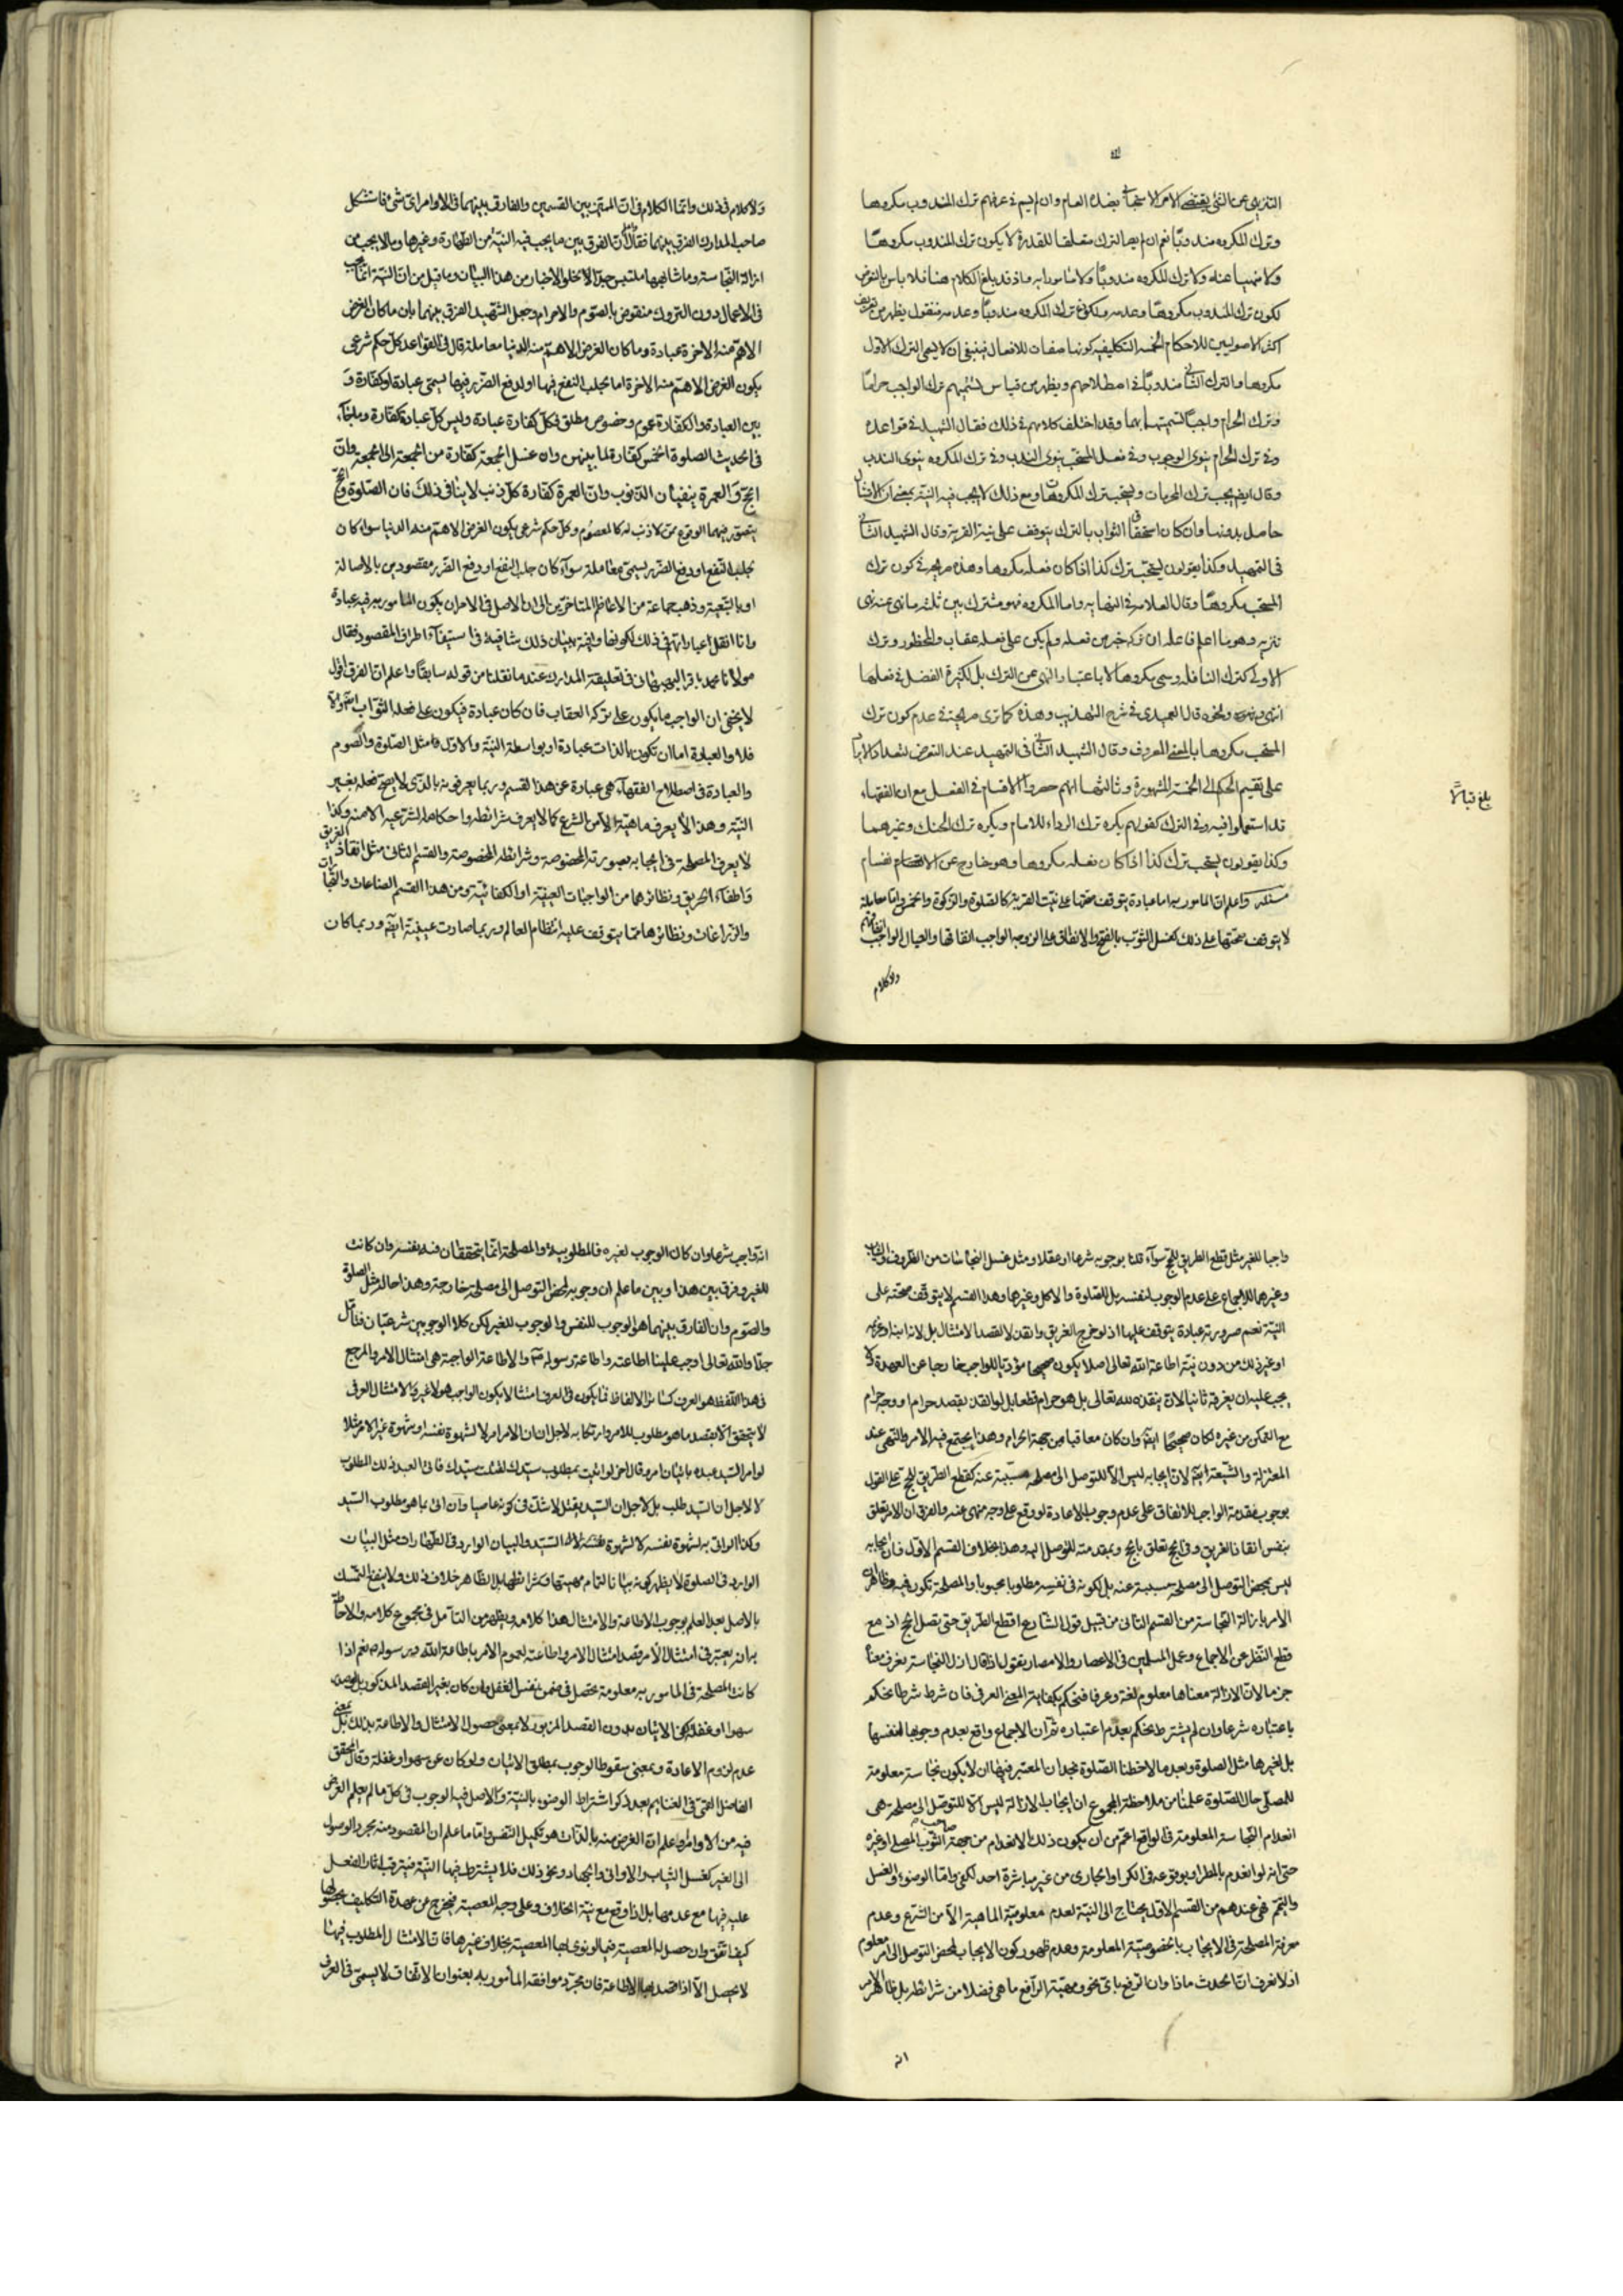 التنزيهى عن الشئ يقتضى الامر الاستحبابى بضده العام وان لم يسم فى عرفهم ترك المندوب مكروها
وترك المكروه مندوبا نعم ان لم يجعل الترك متعلقا للقدرة لا يكون ترك المندوب مكروها
ولا منهيا عنه ولا ترك المكروه مندوبا ولا مامورا به واذ قد بلغ الكلام هنا فلا باس بالتعرض
لكون ترك المندوب مكروها وعدمه وكون ترك المكروه مندوبا وعدمه فنقول يظهر من تعريف
اكثر الاصوليين للاحكام الخمسة التكليفية كونها صفات للافعال فينبغى ان لا يسمى الترك الاول
مكروها والترك الثانى مندوبا فى اصطلاحهم ويظهر من قياس تسميتهم ترك الواجب حراما
وترك الحرام واجبا تسميتهما بهما وقد اختلف كلامهم فى ذلك فقال الشهيد فى قواعده
وفى ترك الحرام ينوى الوجوب وفى فعل المستحب ينوى الندب وفى ترك المكروه ينوى الندب
وقال ايضا يجب ترك المحرمات ويستحب ترك المكروهات ومع ذلك لا يجب فيه النية بمعنى ان الامتثال
حاصل بدونها وان كان استحقاق الثواب بالترك يتوقف على نية القربة وقال الشهيد الثانى
فى التمهيد وكذا يقولون يستحب ترك كذا اذا كان فعله مكروها وهذه صريحة فى كون ترك
المستحب مكروها وقال العلامة فى النهاية واما المكروه فهو مشترك بين ثلثة ما نهى عنه نهى
تنزيه وهو ما اعلم فاعله ان تركه خير من فعله ولم يكن على فعله عقاب والمحظور وترك
الاولى كترك النافلة ويسمى مكروها لا باعتبار النهى عن الترك بل لكثرة الفضل فى فعلها
انتهى ونحوه قال العميدى فى شرح التهذيب وهذه كما ترى صريحة فى عدم كون ترك
المستحب مكروها بالمعنى المعروف وقال الشهيد الثانى فى التمهيد عند التعرض لتعداد الايراد
على تقسيم الحكم الى الخمسة المشهورة وثالثها انهم حصروا الاقسام فى الفعل مع ان الفقهاء
قد استعملوا فيه وفى الترك كقولهم يكره ترك الرداء للامام ويكره ترك الحنك وغيرهما
وكذا يقولون يستحب ترك كذا اذا كان فعله مكروها وهو خارج عن الاقسام
واعلم ان المامور به اما عبادة يتوقف صحتها على نية القربة كالصلوة والزكوة والخمس واما معاملة
لا يتوقف صحتها على ذلك كغسل الثوب بالفتح والانفاق على الزوجة الواجب انفاقها والعيال الواجب
ولا كلام
بلغ قبالا
ولا كلام فى ذلك وانما الكلام فى ان المميز بين القسمين والفارق بينهما فى الاوامر اى شئ فاستشكل
صاحب المدارك الفرق بينهما فقال ان الفرق بين ما يجب فيه النية من الطهارة وغيرها وما لا يجب من
ازالة النجاسة وما شابهها ملتبس جدا لا خلو الاخبار من هذا البيان وما قيل من ان النية انما تجب
فى الاعمال دون التروك منقوض بالصوم والاحرام وجعل الشهيد الفرق بينهما بان ما كان الغرض
الاهم منه الاخرة عبادة وما كان الغرض الاهم منه الدنيا معاملة قال فى القواعد كل حكم شرعى
يكون الغرض الاهم منه الاخرة اما بجلب النفع فيها او لدفع الضرر فيها يسمى عبادة او كفارة و
بين العبادة والكفارة عموم وخصوص مطلق فكل كفارة عبادة وليس كل عبادة كفارة وما جاء
فى الحديث الصلوة الخمس كفارة لما بينهن وان غسل الجمعة كفارة من الجمعة الى الجمعة وان
الحج والعمرة ينفيان الذنوب وان العمرة كفارة كل ذنب لا ينافى ذلك فان الصلوة والحج
يتصور فيهما الوقوع ممن لا ذنب له كالمعصوم وكل حكم شرعى يكون الغرض الاهم منه الدنيا سواء كان
بجلب النفع او دفع الضرر يسمى معاملة سواء كان جلب النفع او دفع الضرر مقصودين بالاصالة
او بالتبعية وذهب جماعة من الاعاظم المتاخرين الى ان الاصل فى الاوامر ان يكون المامور به فيه عبادة
وانا انقل عباراتهم فى ذلك لكونها وافية ببيان ذلك شافية فى استيفاء اطراف المقصود فقال
مولانا محمد باقر البهبهانى فى تعليقة المدارك عند ما نقلنا من قوله سابقا واعلم ان الفرق اقول
لا يخفى ان الواجب ما يكون على تركه العقاب فان كان عبادة فيكون على فعله الثواب ايضا والا
فلا والعبادة اما ان تكون بالذات عبادة او بواسطة النية والاول مثل الصلوة والصوم
والعبادة فى اصطلاح الفقهاء هى عبارة عن هذا القسم وربما يعرفونه بالذى لا يصح فعله بغير
النية وهذا لا يعرف ماهيته الا من الشرع كما لا يعرف شرائطه واحكامه الشرعية الا منه وكذا
لا يعرف المصلحة فى ايجابه بصورته المخصوصة وشرائطه المخصوصة والقسم الثانى مثل انقاذ الغريق
واطفاء الحريق ونظائرهما من الواجبات العينية او الكفائية ومن هذا القسم الصناعات والتجارات
والزراعات ونظائرها مما يتوقف عليه انتظام العالم وربما صارت عينية ايضا وربما كان
واجبا للغير مثل قطع الطريق للحج سواء قلنا بوجوبه شرعا او عقلا ومثل غسل النجاسات من الظروف والثياب
وغيرهما للاجماع على عدم الوجوب لنفسه بل للصلوة والاكل وغيرها وهذا القسم لا يتوقف صحته على
النية نعم صيرورته عبادة يتوقف عليها اذ لو خرج الغريق وانقذ لا لقصد الامتثال بل لانه ابنه او غيره
او غير ذلك من دون نية اطاعة الله تعالى اصلا يكون صحيحا مؤديا للواجب خارجا عن العهدة لا
يجب عليه ان يغرقه ثانيا لان ينقذه لله تعالى بل هو حرام قطعا بل لو انقذ بقصد حرام او وجه حرام
مع التمكن من غيره لكان صحيحا ايضا وان كان معاقبا من جهة الحرام وهذا يجتمع فيه الامر والنهى عند
المعتزلة والشيعة ايضا لان ايجابه ليس الا للتوصل الى مصلحة مسببة عنه كقطع الطريق للحج على القول
بوجوب مقدمة الواجب للاتفاق على عدم وجوب الاعادة لو وقع على وجه منهى عنه والفرق ان الامر تعلق
بنفس انقاذ الغريق وفى الحج تعلق بالحج وبمقدمته للتوصل اليه وهذا بخلاف القسم الاول فان ايجابه
ليس بمحض التوصل الى مصلحة مسببة عنه بل لكونه فى نفسه مطلوبا محبوبا والمصلحة تكون فيه
الامر بازالة النجاسة من القسم الثانى من قبيل قول الشارع اقطع الطريق حتى يصل الحج اذ مع
قطع النظر عن الاجماع وعمل المسلمين فى الاعصار والامصار نقول اذا قال ازل النجاسة نعرف معناه
جزما لان الازالة معناها معلوم لغة وعرفا فنحكم بكفاية المعنى العرفى فان شرط شرطا نحكم
باعتباره شرعا وان لم يشترط نحكم بعدم اعتباره ثم ان الاجماع واقع بعدم وجوبها لنفسها
بل لغيرها مثل الصلوة وبعد ما لاحظنا الصلوة نجد ان المعتبر فيها ان لا يكون نجاسة معلومة
للمصلى حال الصلوة علمنا من ملاحظة المجموع ان ايجاب الازالة ليس الا للتوصل الى مصلحة هى
انعدام النجاسة المعلومة فى الواقع اعم من ان يكون ذلك الانعدام من جهة صاحب الثوب المصلى او غيره
حتى انه لو انعدم بالمطر او بوقوعه فى الكر او الجارى من غير مباشرة احد لكفى واما الوضوء والغسل
والتيمم فهى عندهم من القسم الاول يحتاج الى النية لعدم معلومية الماهية الا من الشرع وعدم
معرفة المصلحة فى الايجاب بالخصوصية المعلومة وعدم ظهور كون الايجاب لمحض التوصل الى امر معلوم
اذ لا نعرف ان الحدث ماذا وان الرفع باى نحو ومهية الرافع ما هى فضلا من شرائطه بل ظاهر الامر
انه
انه واجب شرعا وان كان الوجوب لغيره فالمطلوبية والمصلحة انما يتحققان فيه نفسه وان كانت
للغير وفرق بين هذا وبين ما علم ان وجوبه لمحض التوصل الى مصلحة خارجة وهذا حاله مثل الصلوة
والصوم وان الفارق بينهما هو الوجوب للنفس والوجوب للغير لكن كلا الوجوبين شرعيان فتامل
جدا والله تعالى اوجب علينا اطاعته واطاعة رسوله والاطاعة الواجبة هى امتثال الامر والمرجع
فى هذا اللفظ هو العرف كسائر الالفاظ فما يكون فى العرف امتثالا يكون الواجب هو لا غير والامتثال العرفى
لا يتحقق الا بقصد ما هو مطلوب للامر وارتكابه لاجل ان الامر امر لا لشهوة نفسه او شهوة غير الامر مثلا
لو امر السيد عبده باتيان امر وقال اخر لو اتيت بمطلوب سيدك لقتلت سيدك فاتى العبد ذلك المطلوب
لا لاجل ان السيد طلب بل لاجل ان السيد يقتل لا شك فى كونه عاصيا وان اتى بما هو مطلوب السيد
وكذا لو اتى به لشهوة نفسه لا لشهوة السيد والبيان الوارد فى الطهارات مثل البيان
الوارد فى الصلوة لا يظهر كونه بيانا لتمام مهيتها وشرائطها بل الظاهر خلاف ذلك ولا ينفع التمسك
بالاصل بعد العلم بوجوب الاطاعة والامتثال هذا كلامه ويظهر من التامل فى مجموع كلامه والاحاطة
به انه يعتبر فى امتثال الامر قصد امتثال الامر واطاعته لعموم الامر باطاعة الله ورسوله نعم اذا
كانت المصلحة فى المامور به معلومة يحصل فى ضمن نفس الفعل وان كان بغير القصد المذكور
سهوا او غفلة يكفى الاتيان بدون القصد المزبور لا بمعنى حصول الامتثال والاطاعة بذلك بل بمعنى
عدم لزوم الاعادة وبمعنى سقوط الوجوب بمطلق الاتيان ولو كان عن سهو او غفلة وقال المحقق
الفاضل القمى فى الغنايم بعد ذكر اشتراط الوضوء بالنية والاصل فيه الوجوب فى كل ما لم يعلم الغرض
فيه من الاوامر او علم ان الغرض منه بالذات هو تكميل النفس واما ما علم ان المقصود منه مجرد الوصول
الى الغير كغسل الثياب والاوانى والجهاد ونحو ذلك فلا يشترط فيها النية فيترتب اثار الفعل
عليه فيها مع عدمها بل اذا وقع مع نية الخلاف وعلى وجه المعصية فيخرج عن عهدة التكليف بحصولها
كيف اتفق وان حصل له المعصية فيما لو نوى لها المعصية بخلاف غيرها فان الامتثال المطلوب فيها
لا يحصل الا اذا قصد بها الاطاعة فان مجرد موافقة المامور به بعنوان الاتفاق لا يسمى فى العرف